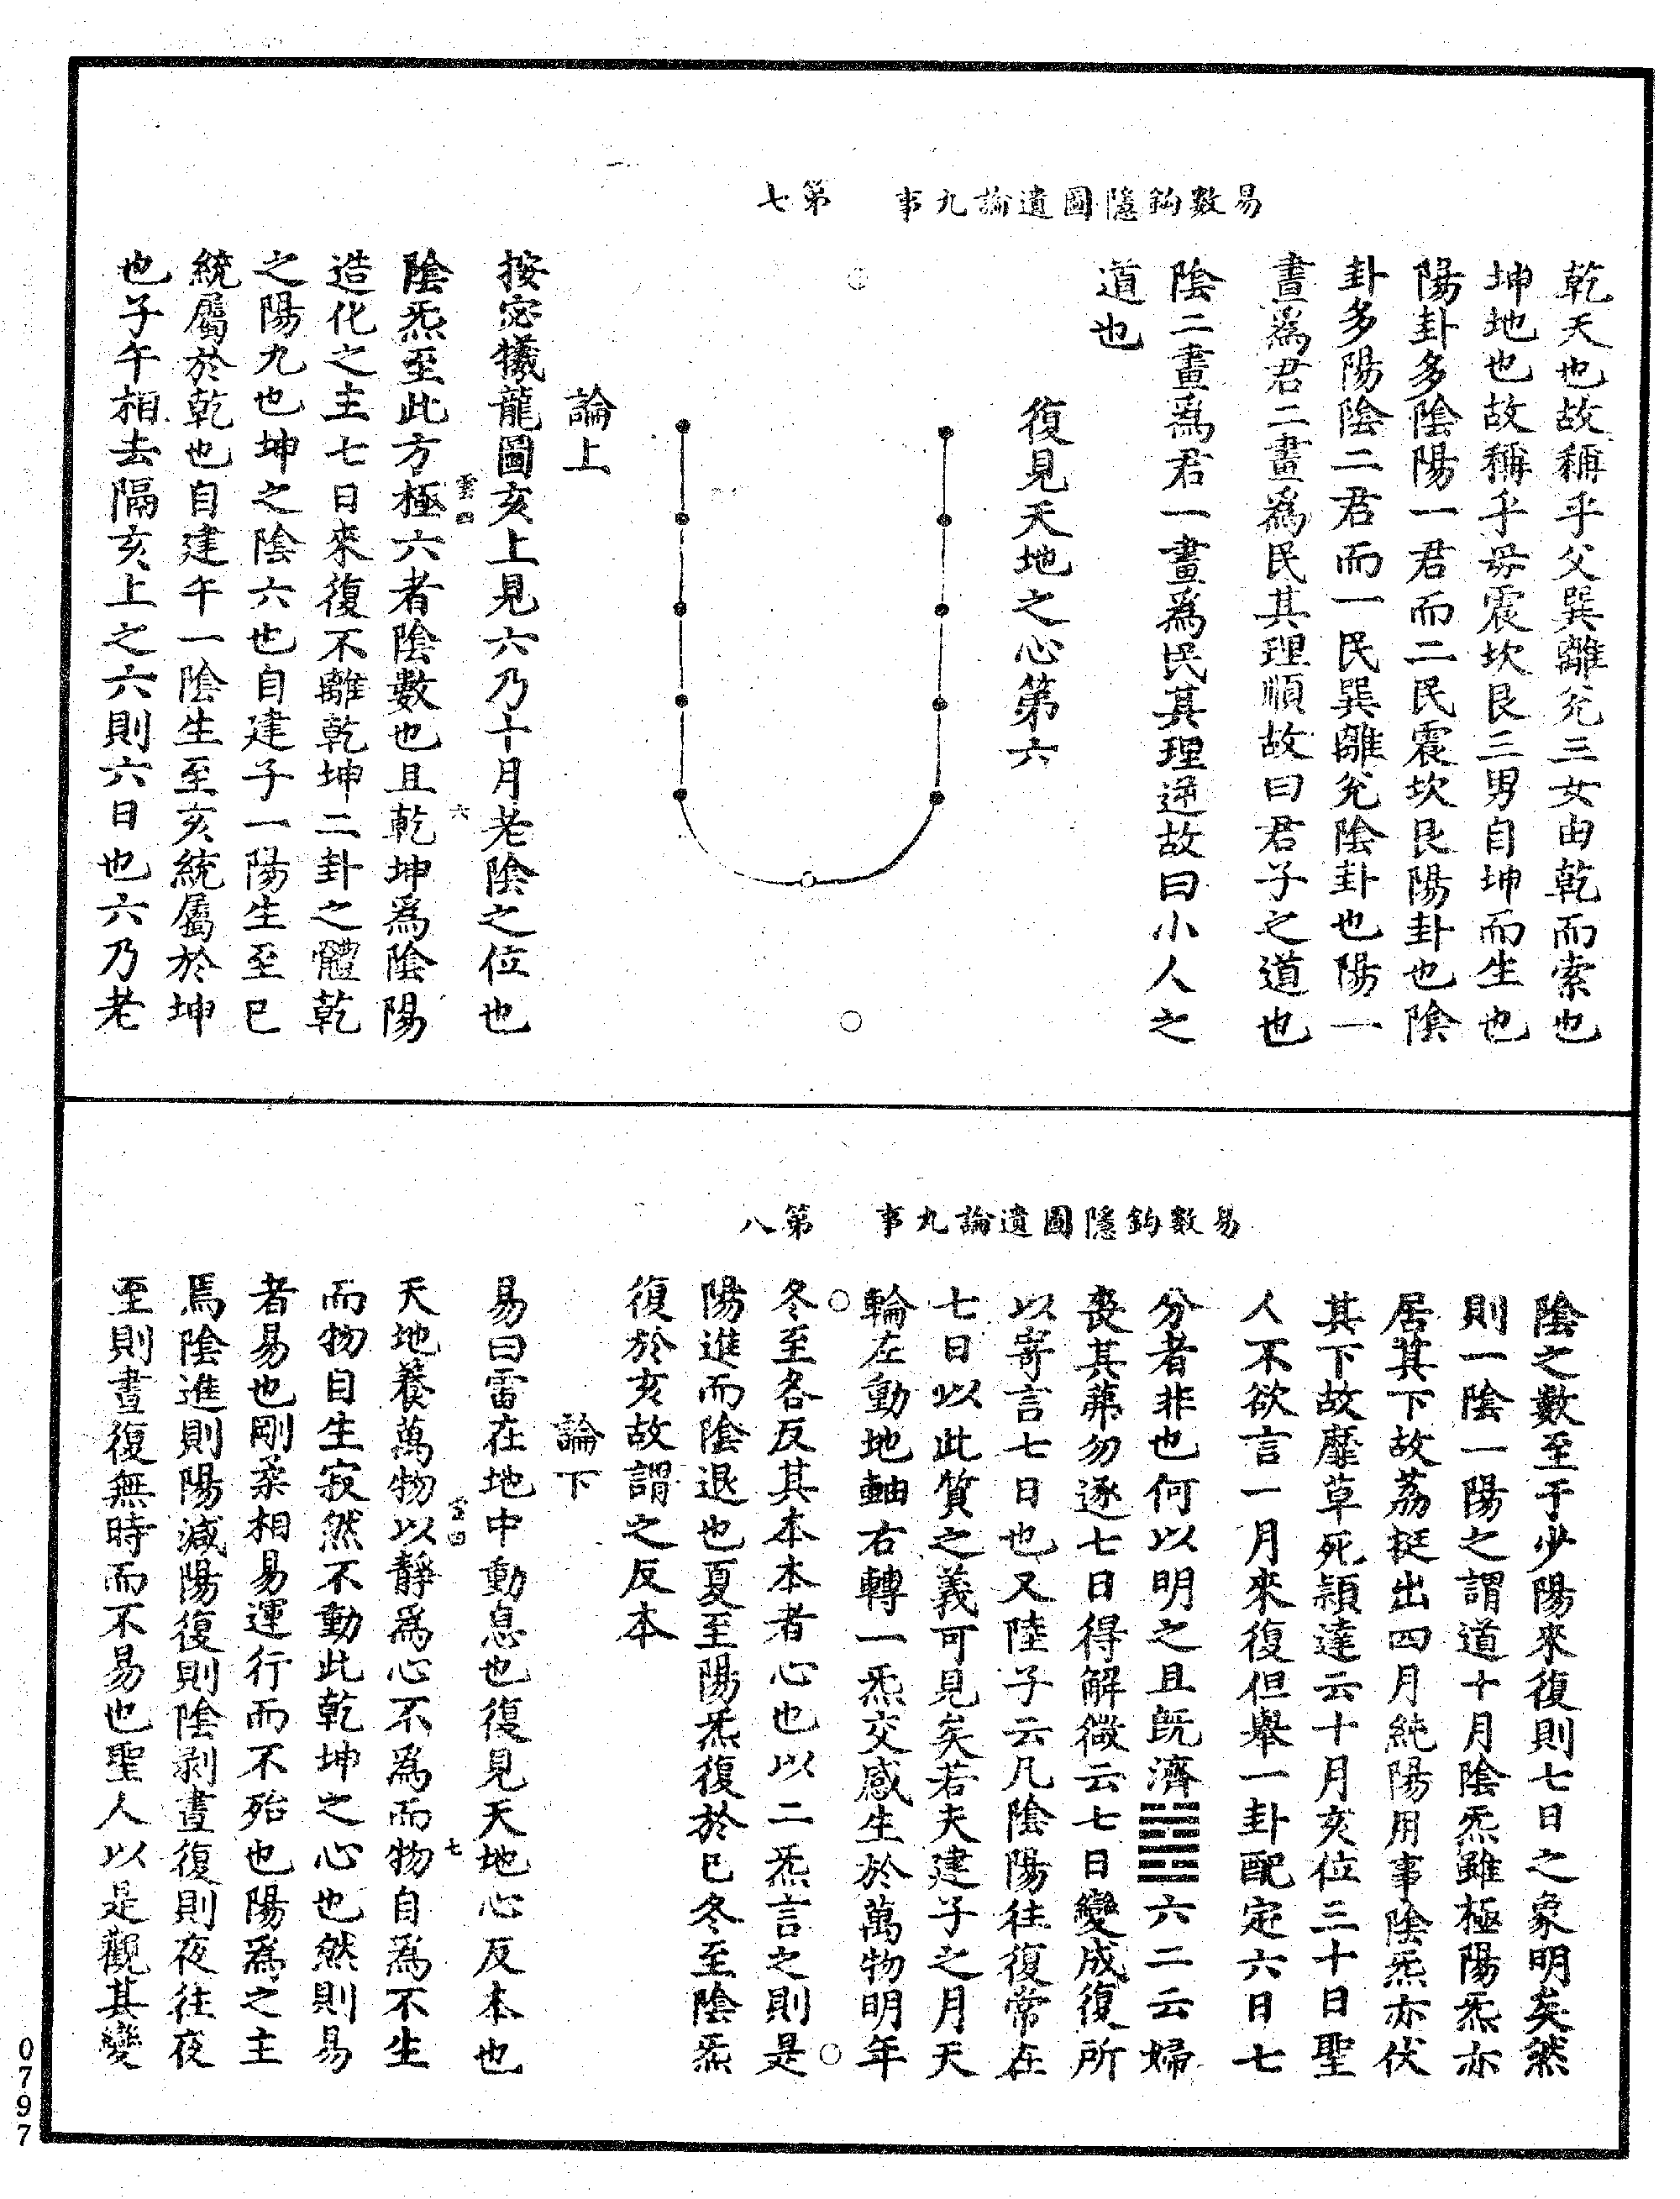 易數鈎隱圖遺論九事　第七
乾天也故稱乎父巽離兊三女由乾而索也
坤地也故稱乎母震坎艮三男自坤而生也
陽卦多陰陽一君而二民震坎艮陽卦也陰
卦多陽陰二君而一民巽離兊陰卦也陽一
畫爲君二畫爲民其理順故曰君子之道也
陰二畫爲君一畫爲民其理逆故曰小人之
道也
復見天地之心第六
論上
按宓犧龍圖亥上見六乃十月老陰之位也
雲四
六
陰炁至此方極六者陰數也且乾坤爲陰陽
造化之主七日來復不離乾坤二卦之體乾
之陽九也坤之陰六也自建子一陽生至巳
統屬於乾也自建午一陰生至亥統屬於坤
也子午相去隔亥上之六則六日也六乃老
易數鈎隱圖遺論九事　第八
陰之數至于少陽來復則七日之象明矣然
則一陰一陽之謂道十月陰炁雖極陽炁亦
居其下故荔挺出四月純陽用事陰炁亦伏
其下故靡草死穎達云十月亥位三十日聖
人不欲言一月來復但舉一卦配定六日七
分者非也何以明之且旣濟䷾六二云婦
喪其茀勿逐七日得解微云七日變成復所
以寄言七日也又陸子云凡陰陽往復常在
七日以此質之義可見矣若夫建子之月天
輪左動地軸右轉一炁交感生於萬物明年
冬至各反其本本者心也以二炁言之則是
陽進而陰退也夏至陽炁復於巳冬至陰炁
復於亥故謂之反本
論下
易曰雷在地中動息也復見天地心反本也
雲四
七
天地養萬物以靜爲心不爲而物自爲不生
而物自生寂然不動此乾坤之心也然則易
者易也剛柔相易運行而不殆也陽爲之主
焉陰進則陽減陽復則陰剥晝復則夜往夜
至則晝復無時而不易也聖人以是觀其變
0797